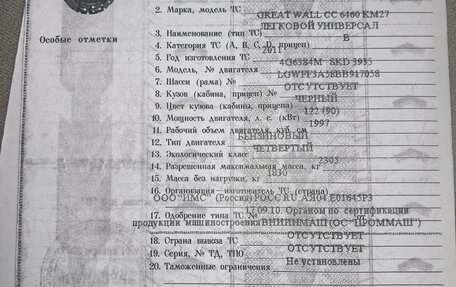 2. Марка, модель ТС GREAT WALL CC 6460 KM27
ЛЕГКОВОЙ УНИВЕРСАЛ
3. Наименование (тип ТС)
Особые отметки
4. Категория ТС (A, B, C, D, прицеп) B
5. Год изготовления ТС 2011
6. Модель, № двигателя 4G63S4M SKD 3995
7. Шасси (рама) № LGWFF3A56BB917058
8. Кузов (кабина, прицеп) № ОТСУТСТВУЕТ
9. Цвет кузова (кабины, прицепа) ЧЕРНЫЙ
10. Мощность двигателя, л. с. (кВт) 122 (90)
11. Рабочий объем двигателя, куб. см 1997
12. Тип двигателя БЕНЗИНОВЫЙ
13. Экологический класс ЧЕТВЕРТЫЙ
14. Разрешенная максимальная масса, кг 2305
15. Масса без нагрузки, кг 1830
16. Организация—изготовитель ТС (страна)
ООО "ИМС" (Россия) РОСС RU.АЯ04.Е01645Р3
17. Одобрение типа ТС № от
.09.10. Органом по сертификации
продукции машиностроения ВНИИНМАШ (ОС "ПРОММАШ")
18. Страна вывоза ТС ОТСУТСТВУЕТ
19. Серия, № ТД, ТПО ОТСУТСТВУЕТ
20. Таможенные ограничения Не установлены